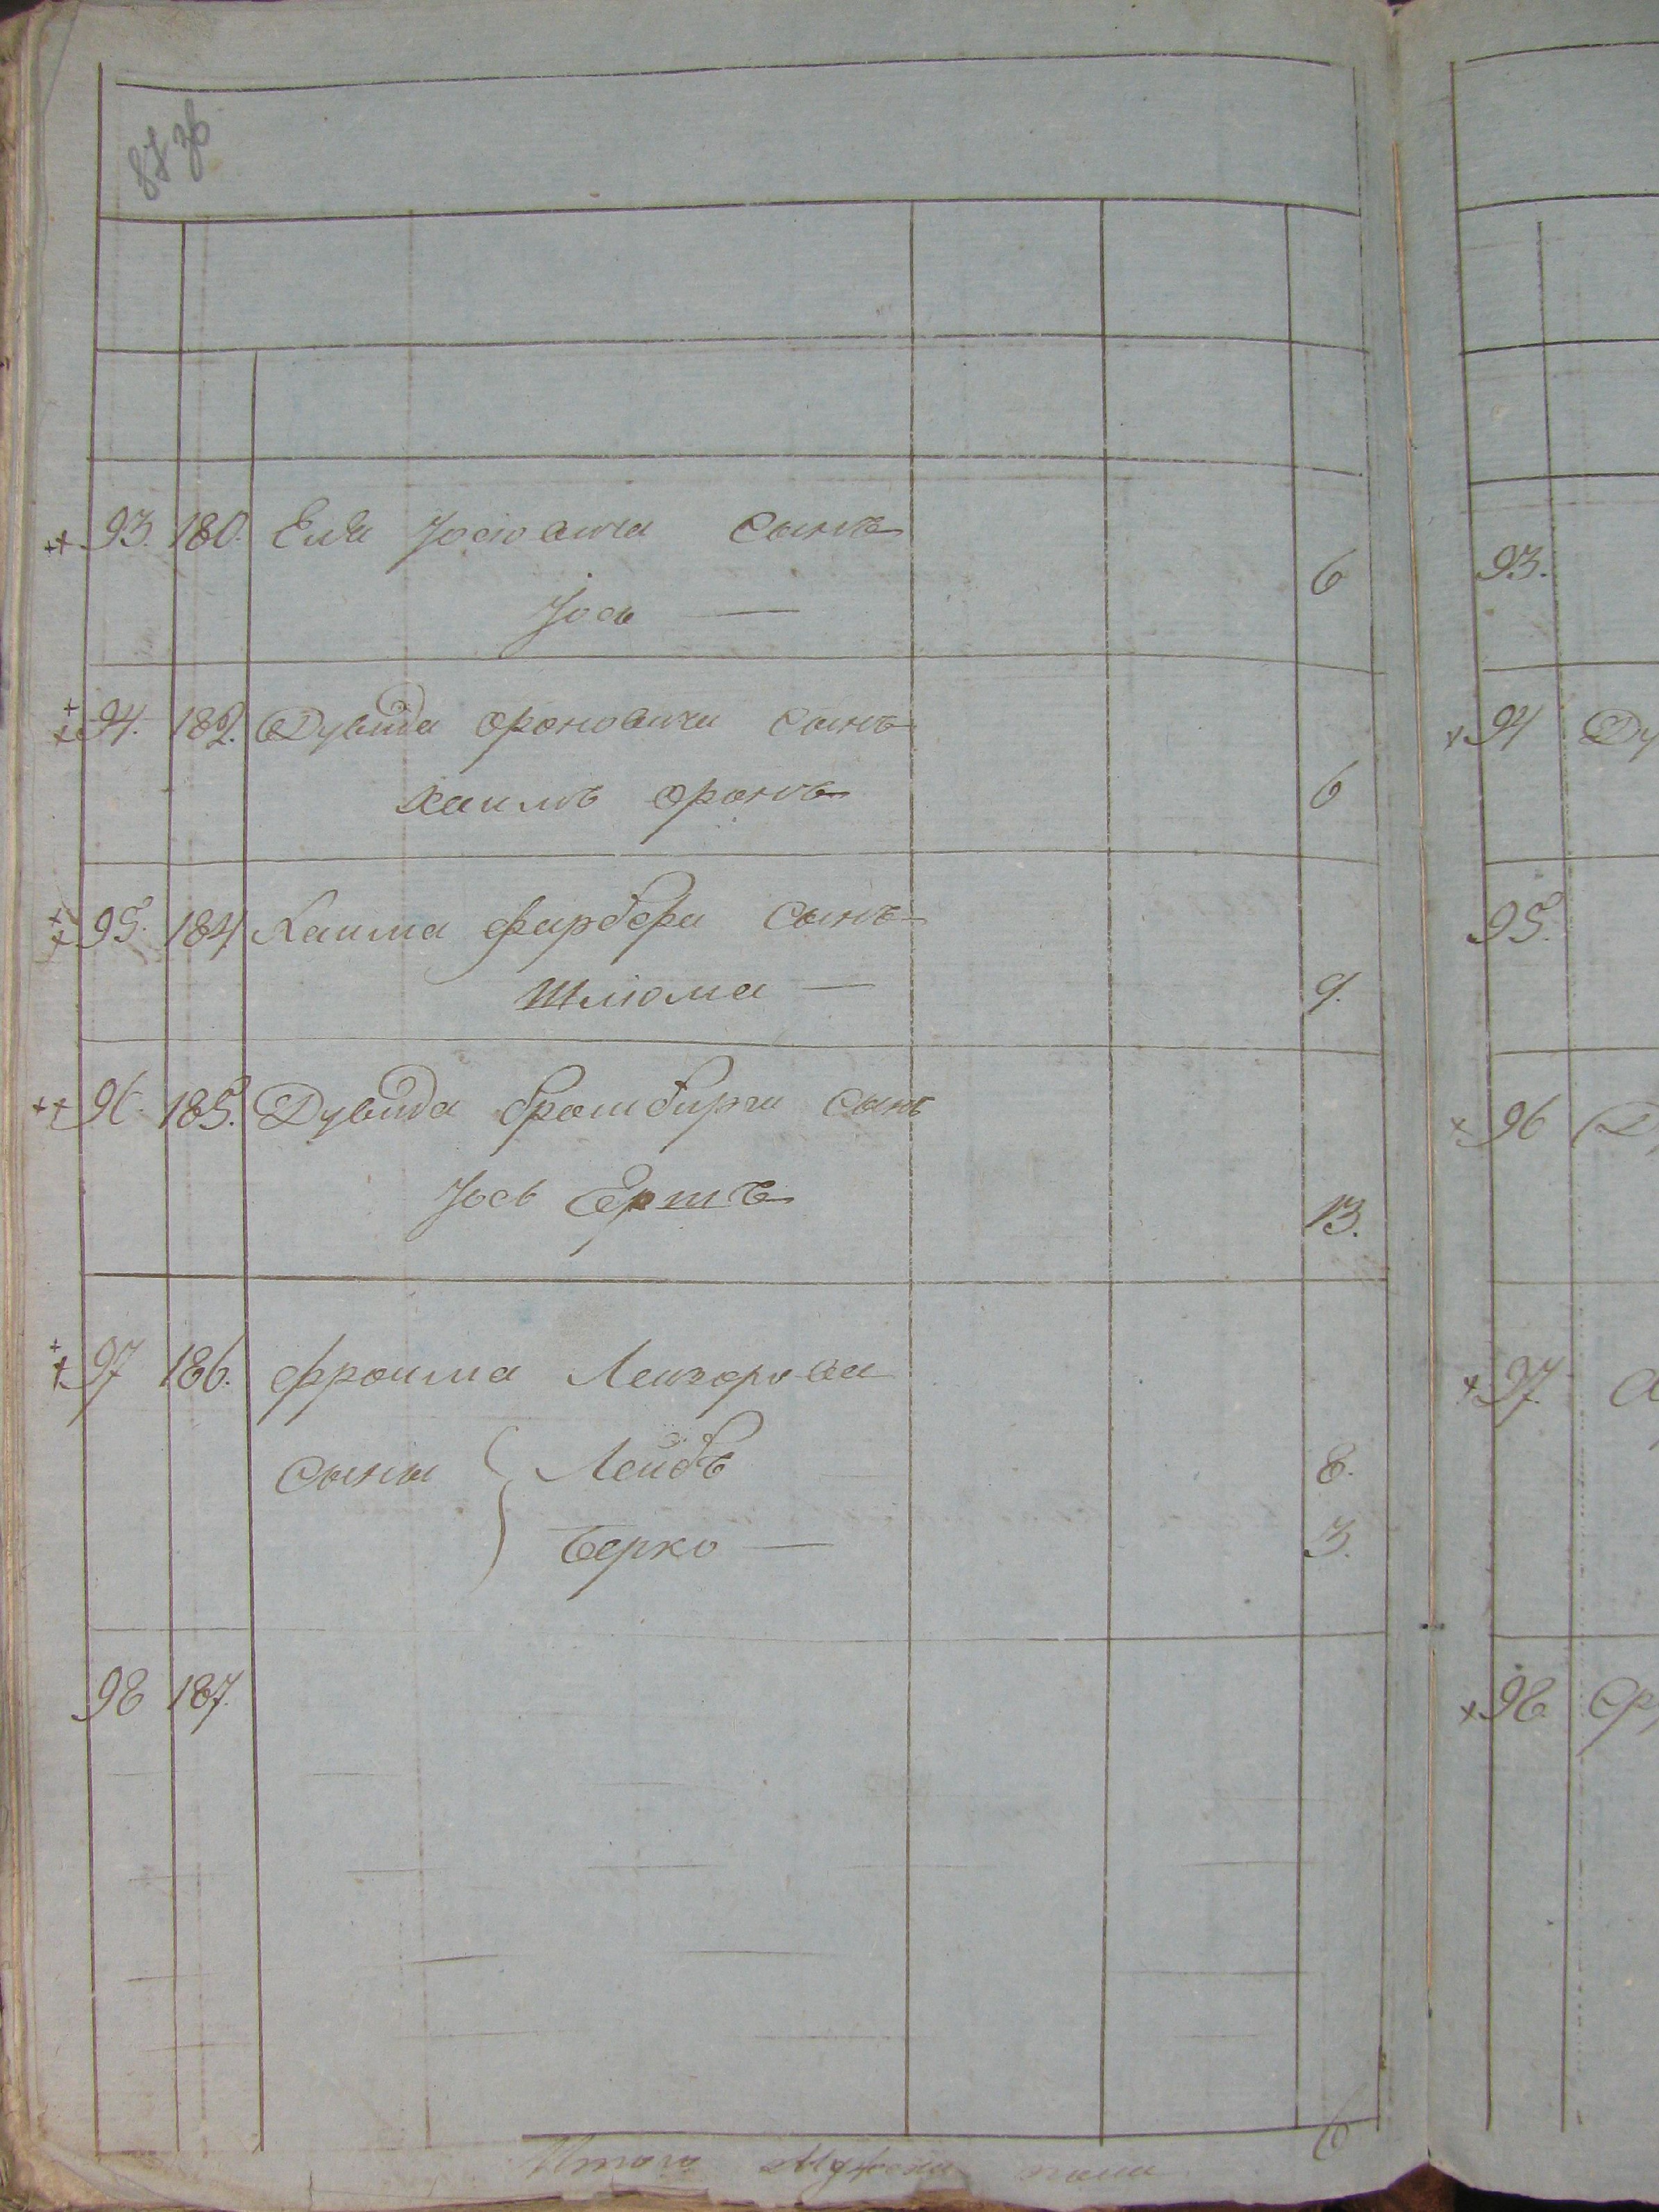 87 зб
93. 180. Еля Иосiовича сынъ
Иось — 6
94. 182. Дувида Ароновича сынъ
Хаимъ Аронъ 6
95. 184 Хаима Фарбера сынъ
Шлiома — 9.
96. 185. Дувида сынъ
Иось Ершъ 13.
97 186. Фроима Лейзорова
Сыны Лейбъ 8.
Берко — 3.
98 187.
Итого мужеска пола 6
93.
94 Ду
95.
96 Д
97.
98